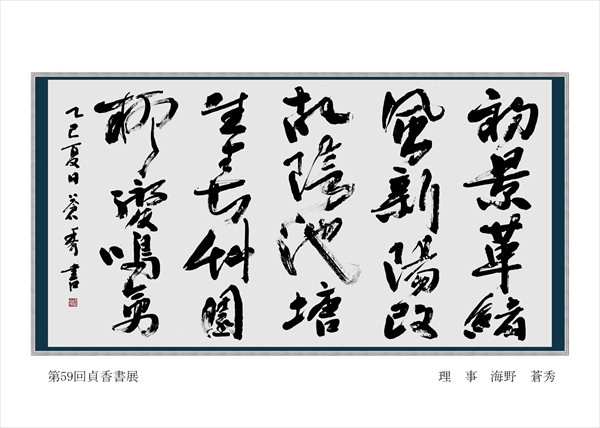 初景革緒
風新陽改
故陰池塘
生春艸園
柳變鳴禽
乙巳夏日 蒼秀書
第59回貞香書展
理 事 海野 蒼秀